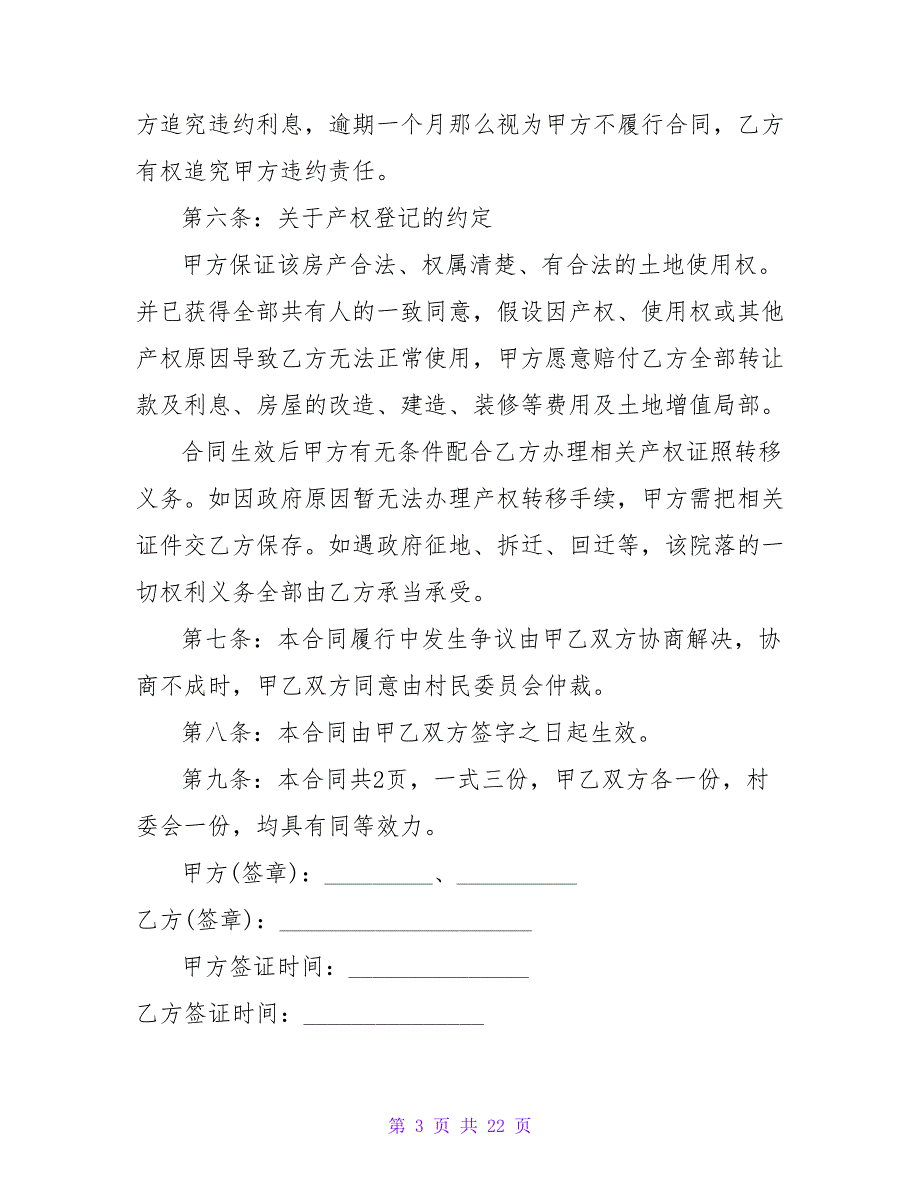 方追究违约利息，逾期一个月那么视为甲方不履行合同，乙方
有权追究甲方违约责任。
第六条：关于产权登记的约定
甲方保证该房产合法、权属清楚、有合法的土地使用权。
并已获得全部共有人的一致同意，假设因产权、使用权或其他
产权原因导致乙方无法正常使用，甲方愿意赔付乙方全部转让
款及利息、房屋的改造、建造、装修等费用及土地增值局部。
合同生效后甲方有无条件配合乙方办理相关产权证照转移
义务。如因政府原因暂无法办理产权转移手续，甲方需把相关
证件交乙方保存。如遇政府征地、拆迁、回迁等，该院落的一
切权利义务全部由乙方承当承受。
第七条：本合同履行中发生争议由甲乙双方协商解决，协
商不成时，甲乙双方同意由村民委员会仲裁。
第八条：本合同由甲乙双方签字之日起生效。
第九条：本合同共2页，一式三份，甲乙双方各一份，村
委会一份，均具有同等效力。
甲方(签章)：_________、__________
乙方(签章)：_____________________
甲方签证时间：_______________
乙方签证时间：_______________
第 3 页 共 22 页